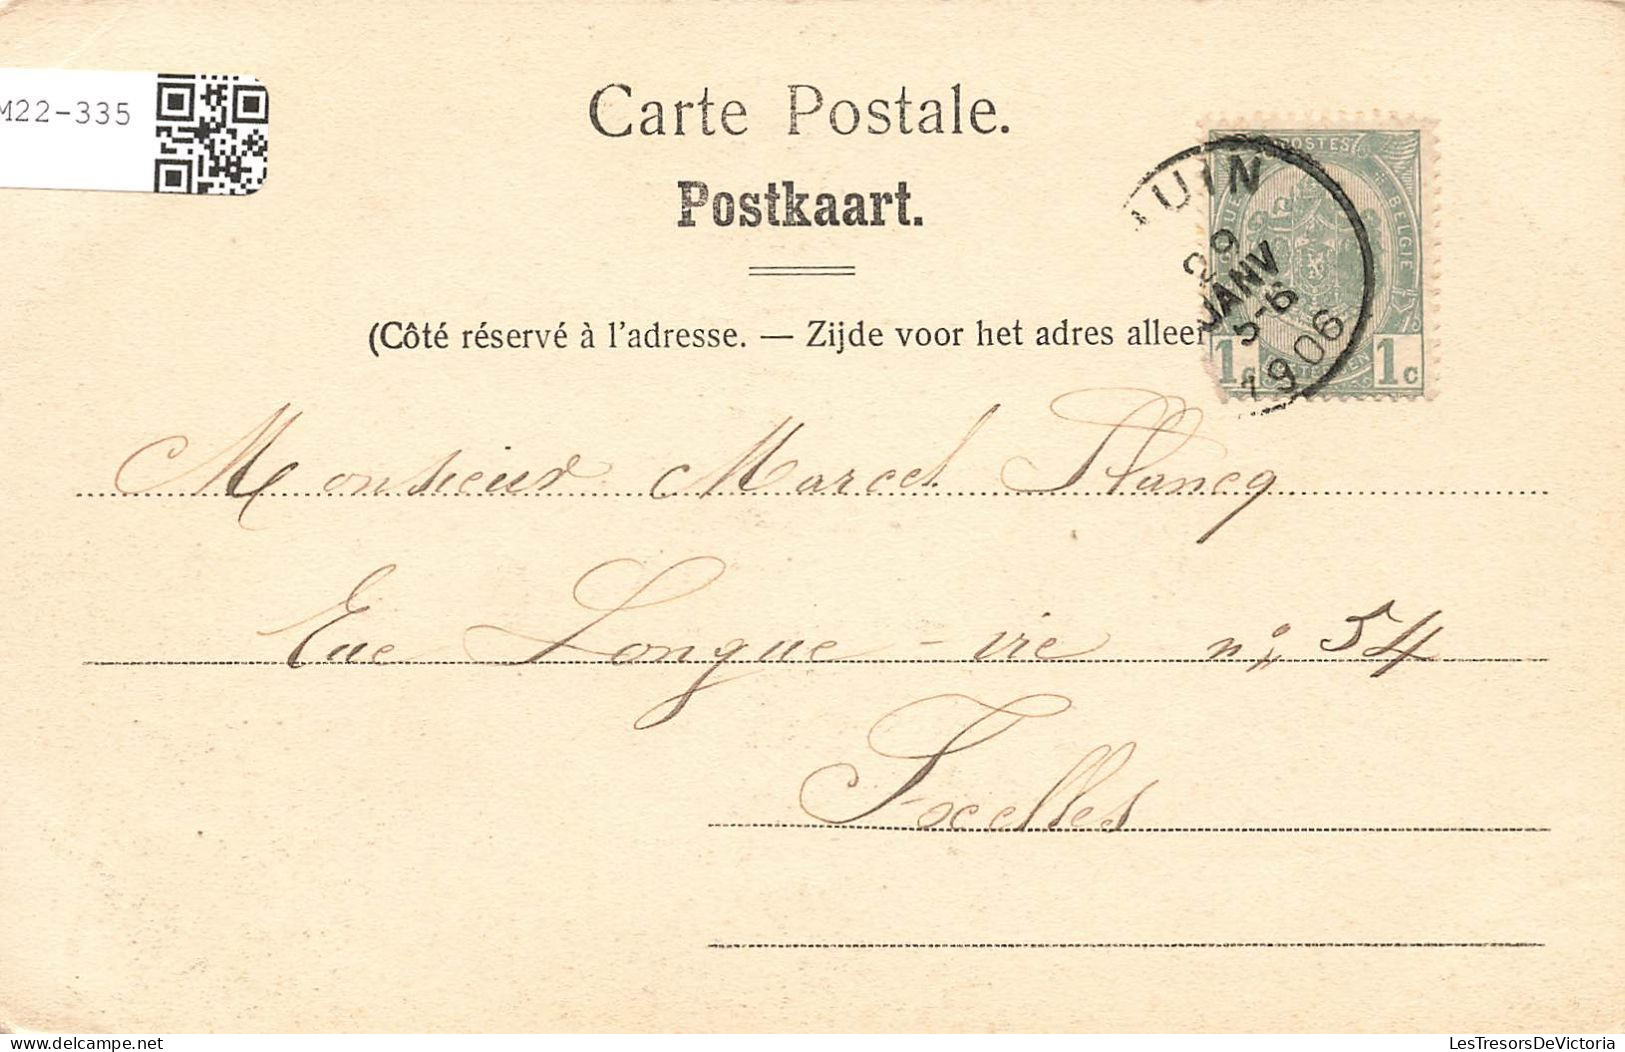 M22-335
Carte Postale.
Postkaart.
(Côté réservé à l'adresse. — Zijde voor het adres alleen
POSTES
BELGIE
1c 1c
29
JANV
5-6
1906
Monsieur Marcel Plancq
Rue Longue-vie nº 54
Ixelles
LesTresorsDeVictoria
delcampe.net